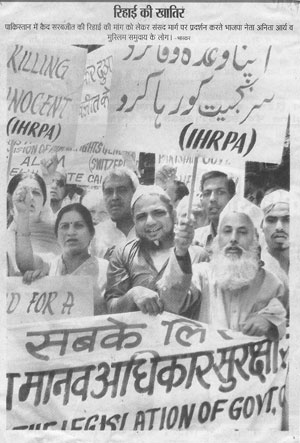 रिहाई की खातिर
पाकिस्तान में कैद सरबजीत की रिहाई की मांग को लेकर संसद मार्ग पर प्रदर्शन करते भाजपा नेता अनिता आर्य व
मुस्लिम समुदाय के लोग। -भास्कर
KILLING
INNOCENT
(IHRPA)
اپنا وعدہ وفا کرو
سربجیت کو رہا کرو
(IHRPA)
D FOR A
सबके लि
मानव अधिकार सुरक्षा
THE LEGISLATION OF GOVT.